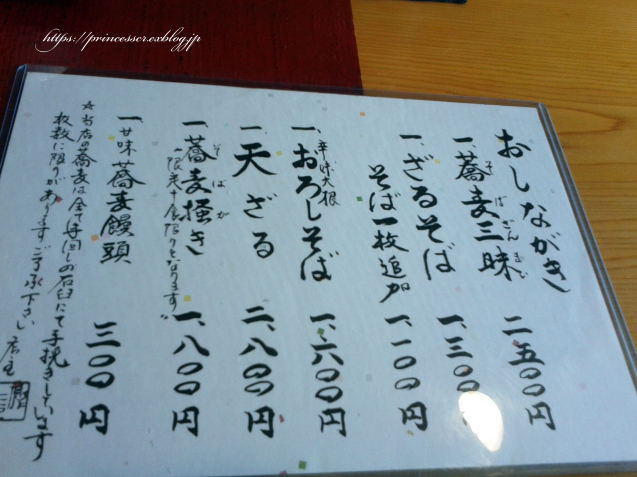 https://princesscr.exblog.jp
おしながき
一、蕎麦三昧 二、五〇〇円
そばざんまい
一、ざるそば 一、三〇〇円
そば一枚追加 一、一〇〇円
一、おろしそば 一、六〇〇円
辛味大根
一、天ざる 二、八〇〇円
一、蕎麦掻き 一、八〇〇円
そばが
限定十食限りとなります
一、甘味蕎麦饅頭 三〇〇円
☆当店の蕎麦は全て手回しの石臼にて手挽きしています
枚数に限りがありますご了承下さい 店主